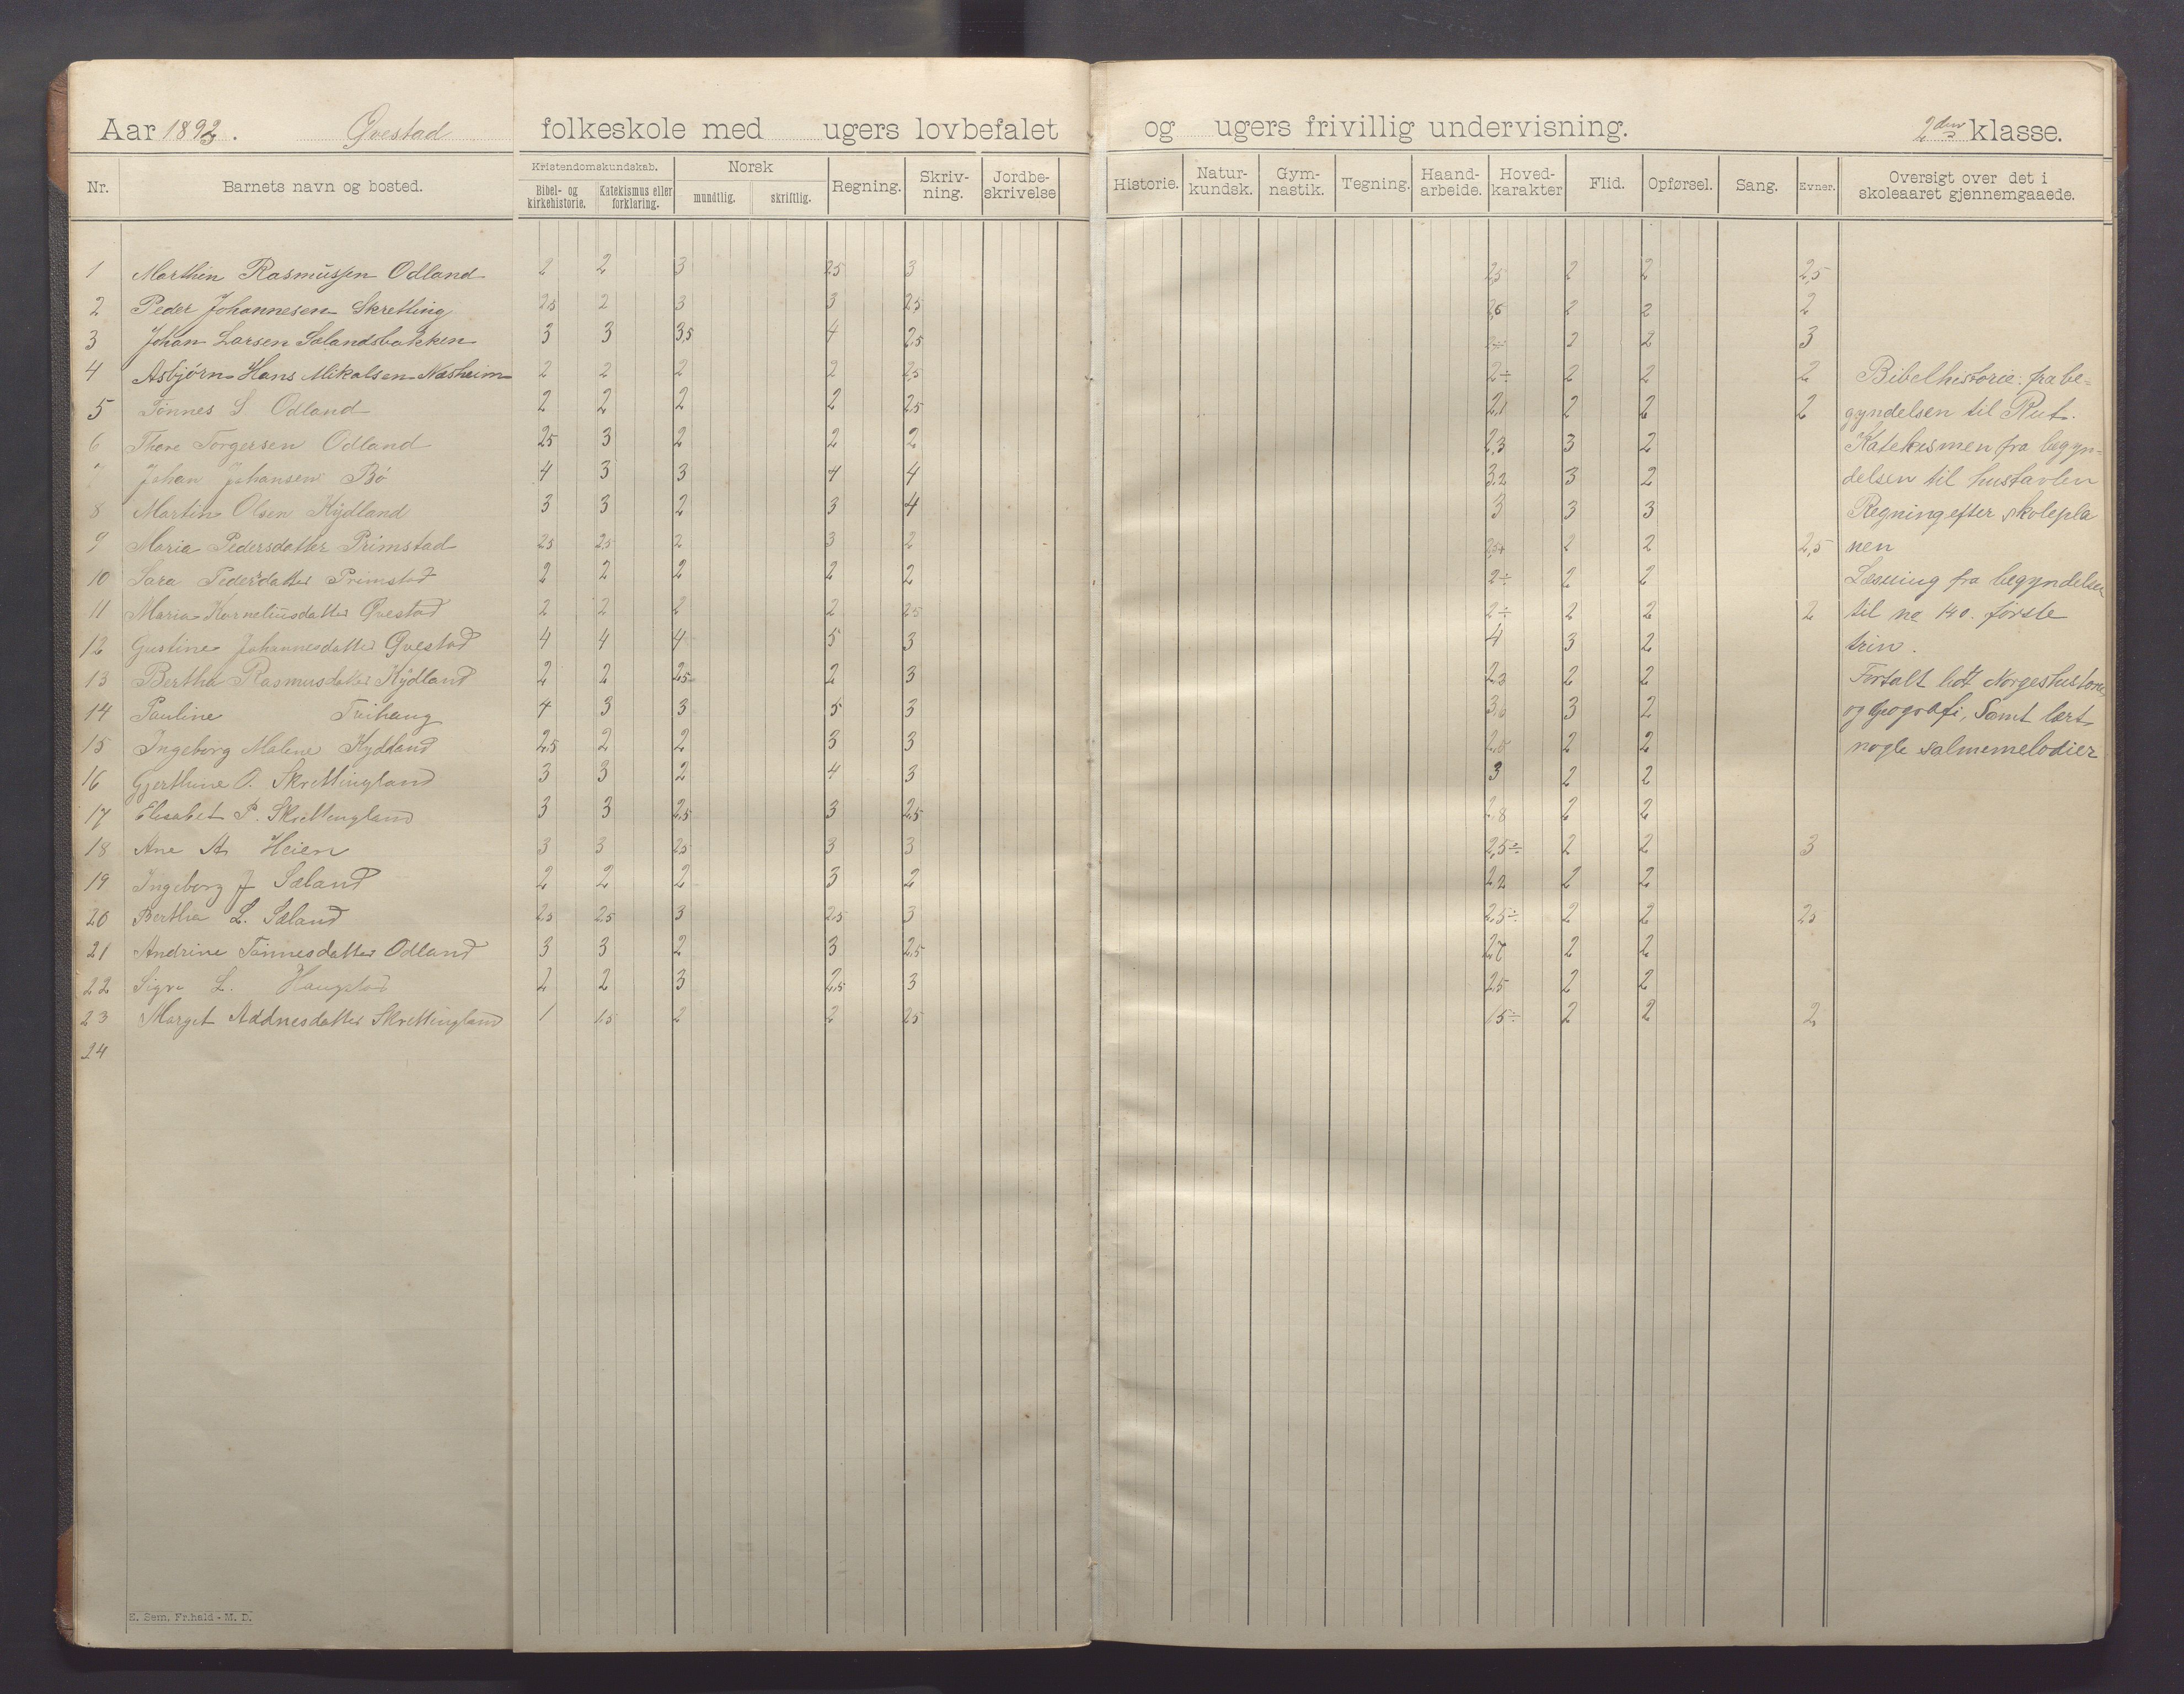 Aar 1893. Qvestad folkeskole med ugers lovbefalet og ugers frivillig undervisning. 2den klasse.
Nr. Barnets navn og bosted. Kristendomskundskab. Bibel- og kirkehistorie. Katekismus eller forklaring. Norsk mundtlig. skriftlig. Regning. Skriv-ning. Jordbe-skrivelse Historie. Natur-kundsk. Gym-nastik. Tegning. Haand-arbeide. Hoved-karakter Flid. Opførsel. Sang. Evner. Oversigt over det i skoleaaret gjennemgaaede.
1 Marthin Rasmussen Odland 2 2 3 2,5 3 2,5 2 2 2,5
2 Peder Johannesen Skretting 2,5 2 3 3 2,5 2,6 2 2 2
3 Johan Larsen Sælandsbakken 3 3 3,5 4 2,5 2 2 3
4 Asbjørn Hans Mikalsen Næsheim 2 2 2 2 2,5 2÷ 2 2 2 Bibelhistorie: fra be=
5 Tønnes S. Odland 2 2 2 2 2,5 2,1 2 2 2 gyndelsen til Rut.
6 Thore Torgersen Odland 2,5 3 2 2 2 2,3 3 2 Katekismen fra begyn=
7 Johan Johansen Bø 4 3 3 4 4 3,2 3 2 delsen til hustavlen
8 Martin Olsen Kydland 3 3 2 3 4 3 3 3 Regning efter skolepla
9 Maria Pedersdatter Primstad 2,5 2,5 2 3 2 2,5+ 2 2 2,5 nen
10 Sara Pedersdatter Primstad 2 2 2 2 2 2÷ 2 2 Læsning fra begyndelsen
11 Maria Korneliusdatter Qvestad 2 2 2 2 2,5 2÷ 2 2 2 til no 140. første
12 Gustine Johannesdatter Qvestad 4 4 4 5 3 4 3 2 trin.
13 Bertha Rasmusdatter Kydland 2 2 2,5 2 3 2,3 2 2 Fortalt lidt Norgeshistorie
14 Pauline 4 3 3 5 3 3,6 3 2 og geografi, Samt lært
15 Ingeborg Malene Kydland 2,5 2 2 3 3 2,5 2 2 nogle salmemelodier
16 Gjerthine O. Skrettingland 3 3 2 4 3 3 2 2
17 Elisabet P. Skrettingland 3 3 2,5 3 2,5 2,8 2 2
18 Ane A. Heien 3 3 2,5 3 3 2,5÷ 2 2 3
19 Ingeborg J Sæland 2 2 2 3 2 2,2 2 2
20 Bertha L. Sæland 2,5 2,5 3 2,5 3 2,5÷ 2 2 2,5
21 Andrine Tønnesdatter Odland 3 3 2 3 2,5 2,7 2 2
22 L. Haugstad 2 2 3 2,5 3 2,5 2 2
23 Marget Addnesdatter Skrettingland 1 1,5 2 2 2,5 1,5÷ 2 2 2
24
E. Sem, Fr.hald - M. D.